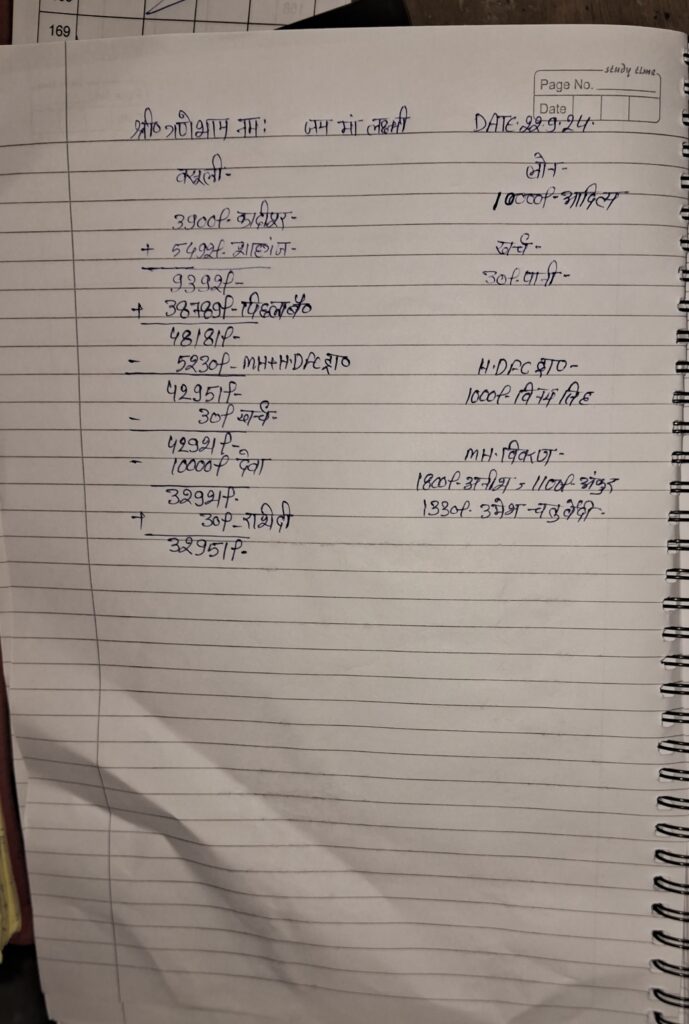 169
study time
Page No.
Date
श्री० गणेशाय नमः जय मां लक्ष्मी DATE. 22.9.24.
वसूली-
3900/- कादीपुर-
+ 5492/- शाहगंज-
9392/-
+ 38789/- पिछला बै०
48181/-
- 5230/- MH+H.DFC इा०
42951/-
- 30/ खर्च-
42921/-
- 10000/ देवा
32921/-
+ 30/- राशीदी
32951/-
लोन-
10000/- आदित्य
खर्च-
30/ पानी-
H.DFC इा०-
1000/- विनय सिंह
MH. विकाश-
1800/- अनीश, 1100/- अंकुर
1330/- उमेश चतुर्वेदी-